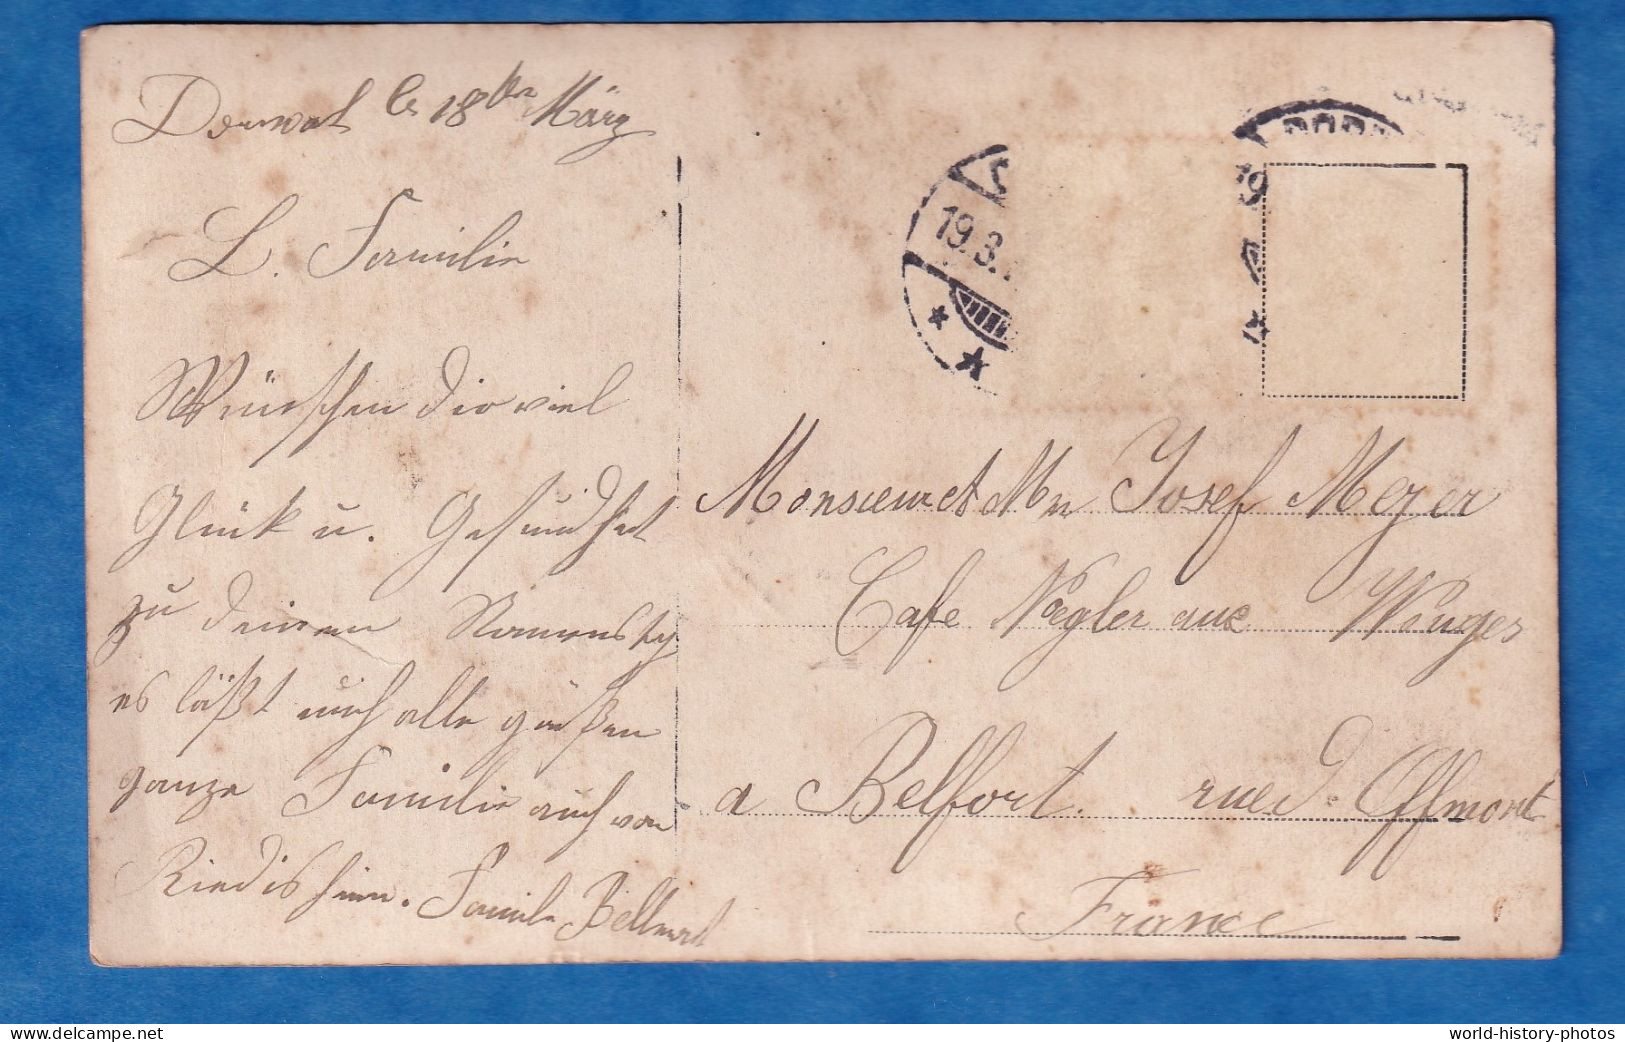 Dornach le 18ten März
L. Familie
Wünschen dir viel
Glück u. Gesundheit
zu deinem Namenstg
es läßt euch alle grüßen
ganze Familie auch von
Riedisheim. Familie
19.3.
19
Monsieur et Mm Josef Meyer
Cafe Nægler aux Wouges
a Belfort. rue d'Offmont
France
world-history-photos
www.delcampe.net